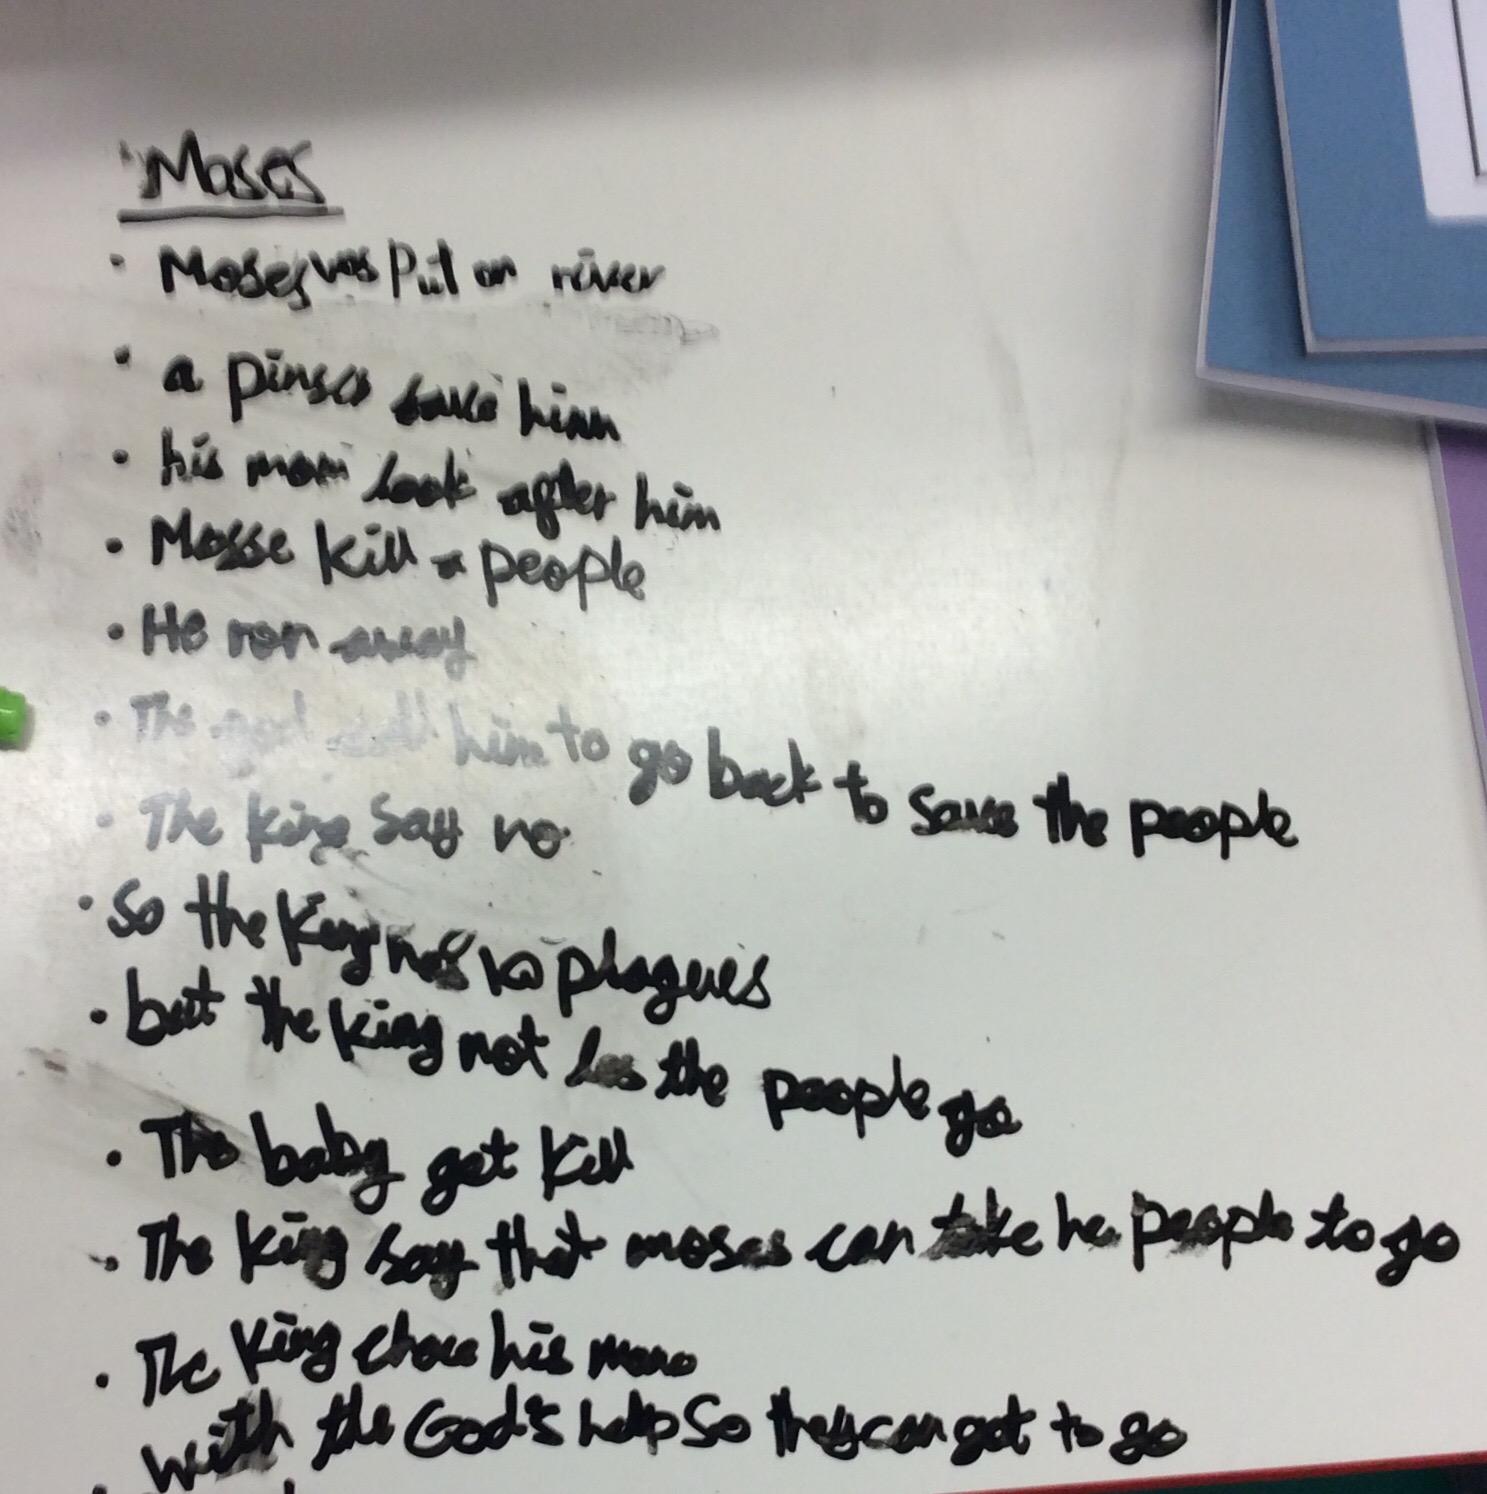 Moses
• Moses was Put on river
• a pinses save him
• his mom look after him
• Mosse kill a people
• He ron away
• The god call him to go back to save the people
• The king Say no
• So the King plagues
• but the king not les the people go
• The baby get kill
• The king say that moses can take he people to go
• The King his
• with the God's help So they can got to go